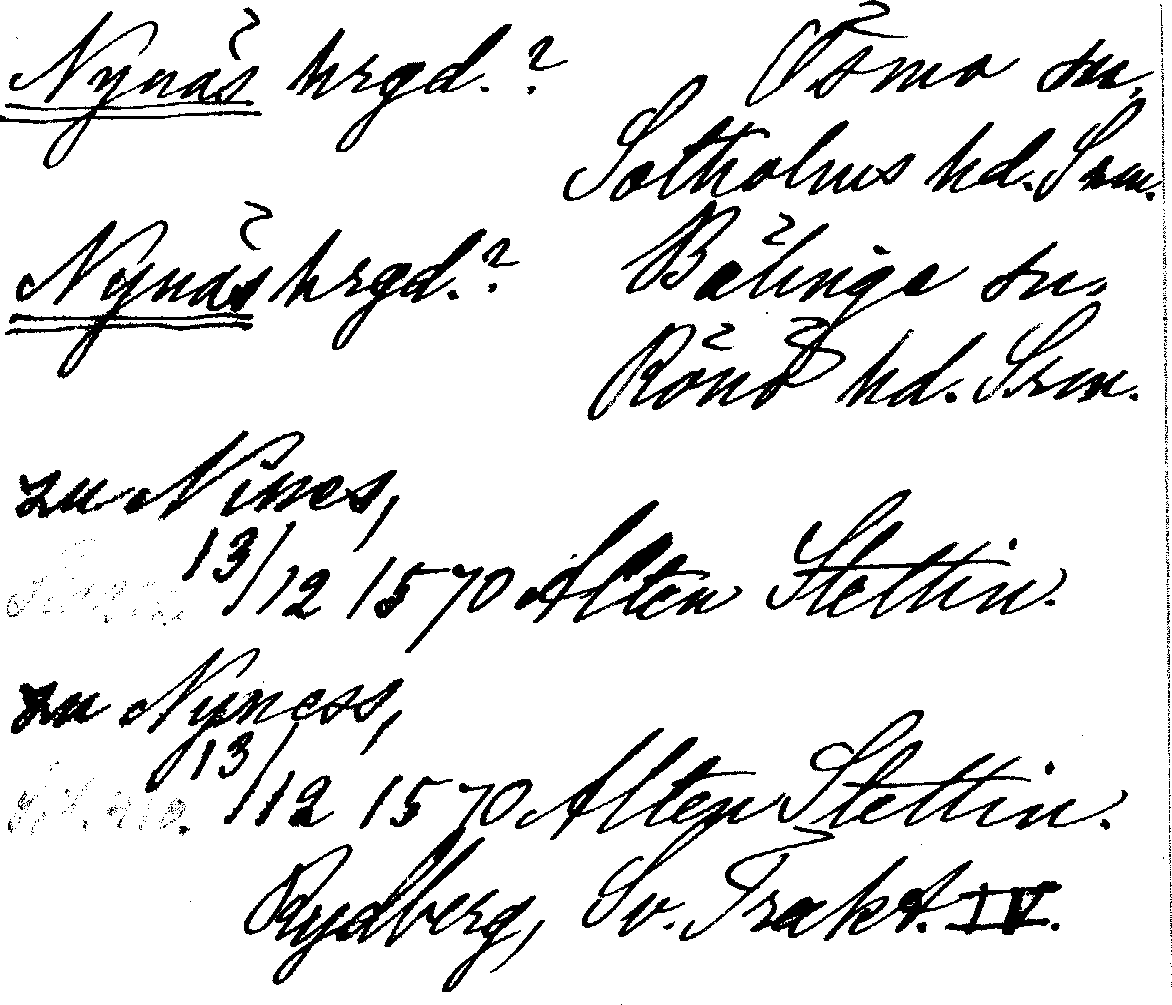 Nynäs hrgd.? Ösmo sn.,
Sotholms hd. Srm.
Nynäs hrgd.? Bälinge sn.
Rönö hd. Srm.
zu Nines,
13/12 1570 Alten Stettin.
zu Nyness,
13/12 1570 Alten Stettin.
Rydberg, Sv. Trakt. IV.